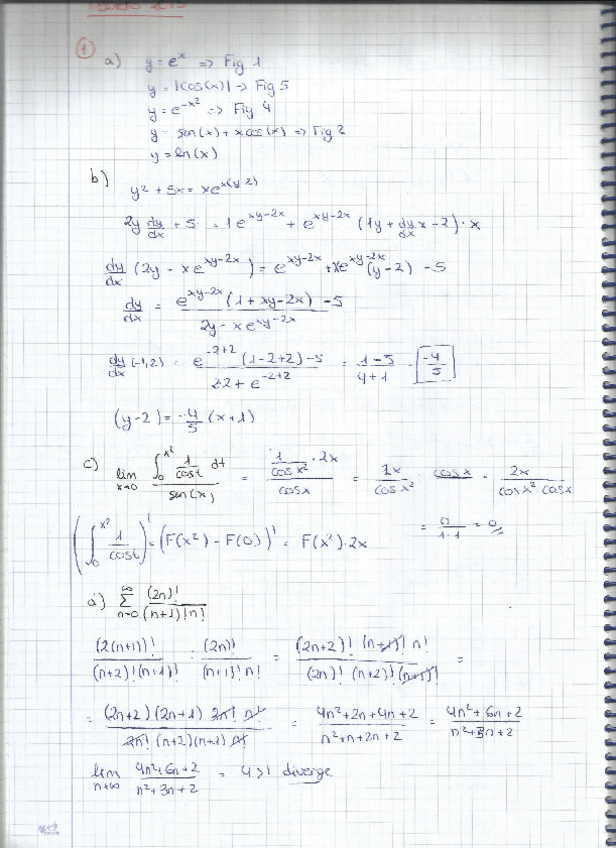 1
a) y = e^x => Fig 1
y = |cos(x)| => Fig 5
y = e^{-x^2} => Fig 4
y = sen(x) + xcos(x) => Fig 2
y = ln(x)
b) y^2 + 5x = xe^{x(y-2)}
2y dy/dx + 5 = 1e^{xy-2x} + e^{xy-2x} (1y + dy/dx x - 2) · x
dy/dx (2y - xe^{xy-2x}) = e^{xy-2x} + xe^{xy-2x} (y-2) - 5
dy/dx = (e^{xy-2x} (1 + xy - 2x) - 5) / (2y - xe^{xy-2x})
dy/dx (-1,2) = (e^{-2+2} (1-2+2) - 5) / (2·2 + e^{-2+2}) = (1-5)/(4+1) = -4/5
(y-2) = -4/5 (x+1)
c) lim x→0 (∫_0^{x^2} 1/cost dt) / sen(x) = (1/cosx^2 · 2x) / cosx = 2x/cosx^2 : cosx = 2x/(cosx^2 cosx)
= 0/1·1 = 0
(∫_0^{x^2} 1/cost)' = (F(x^2) - F(0))' = F(x^2)·2x
d) Σ_{n=0}^∞ (2n)! / (n+1)!n!
(2(n+1))! / (n+2)!(n+1)! : (2n)! / (n+1)!n! = (2n+2)! (n+1)! n! / (2n)! (n+2)! (n+1)! =
= (2n+2)(2n+1) 2n! n! / 2n! (n+2)(n+1) n! = (4n^2+2n+4n+2) / (n^2+n+2n+2) = (4n^2+6n+2) / (n^2+3n+2)
lim n→∞ (4n^2+6n+2) / (n^2+3n+2) = 4>1 diverge